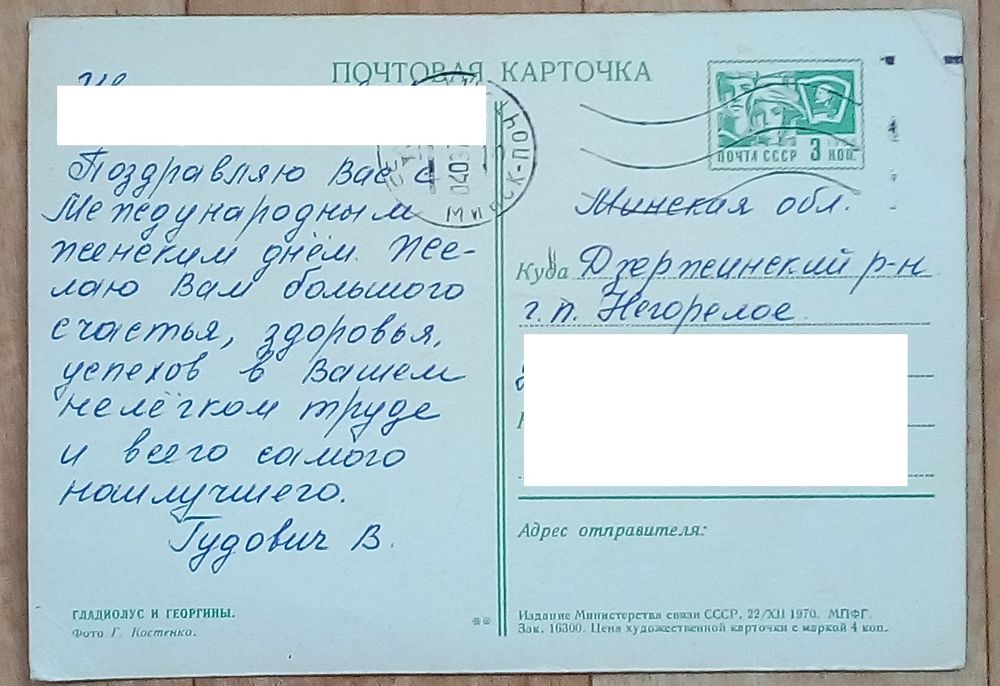 ПОЧТОВАЯ КАРТОЧКА
Поздравляю Вас с
Международным
женским днём. Же-
лаю Вам большого
счастья, здоровья,
успехов в Вашем
нелёгком труде
и всего самого
наилучшего.
Гудович В.
ГЛАДИОЛУС И ГЕОРГИНЫ.
Фото Г. Костенко.
МИНСК-ПОЧ
ПОЧТА СССР 3 КОП.
Минская обл.
Куда Дзержинский р-н
г.п. Негорелое
Адрес отправителя:
Издание Министерства связи СССР. 22/XII 1970. МПФГ.
Зак. 16300. Цена художественной карточки с маркой 4 коп.